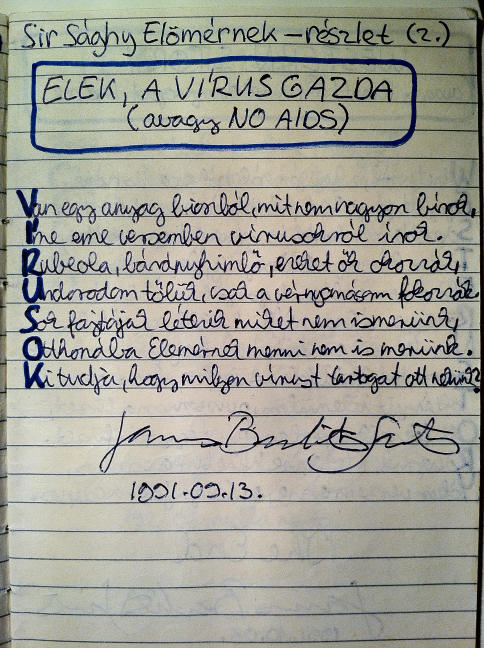 Sir Sághy Előmérnek – részlet (2.)
ELEK, A VÍRUSGAZDA
(avagy NO AIDS)
Van egy anyag biosból, mit nem nagyon bírok,
Íme eme versemben vírusokról írok.
Rubeola, bárányhimlő, ezeket ők okozzák,
Undorodom tőlük, csak a vérnyomásom fokozzák.
Sok fajtáját létezik miket nem ismerünk,
Otthonába Elemérnek menni nem is merünk.
Ki tudja, hogy milyen vírust tartogat ott nekünk?
1991.09.13.